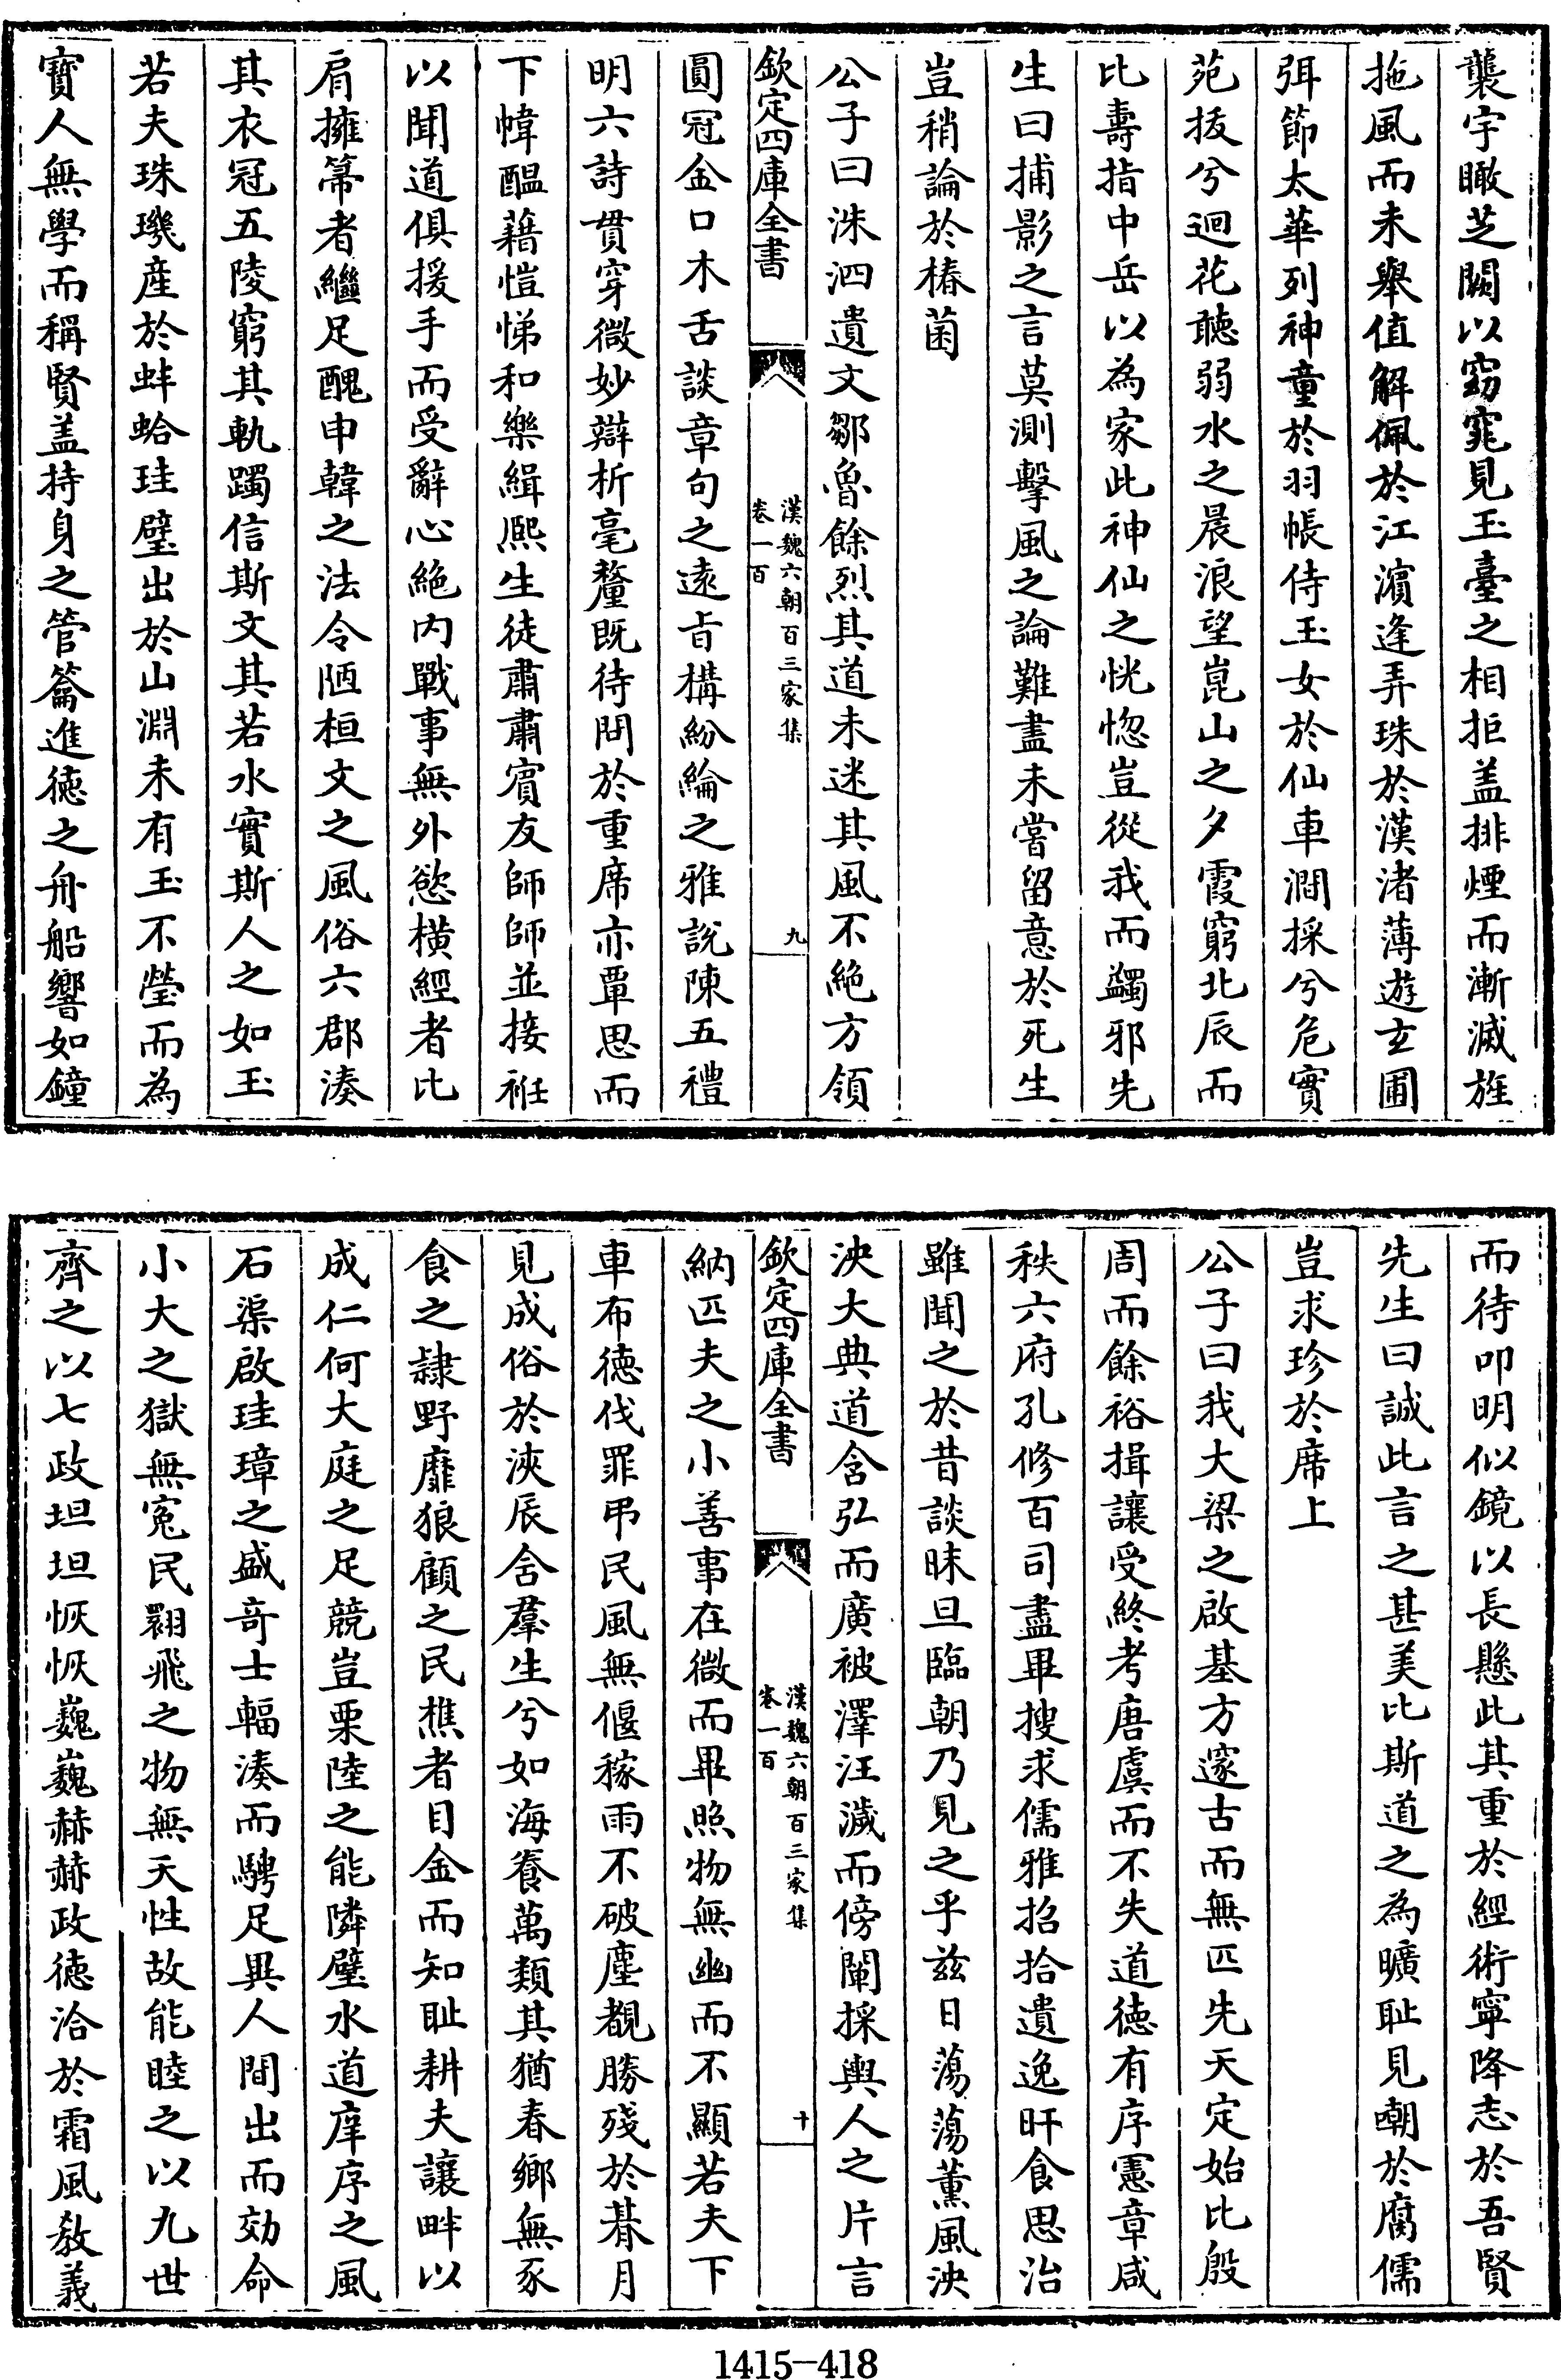 襲宇瞰芝闕以窈窕見玉臺之相拒盖排煙而漸滅旌
拖風而未舉值解佩於江濱逢弄珠於漢渚薄遊玄圃
弭節太華列神童於羽帳侍玉女於仙車澗採兮危實
苑拔兮迴花聴弱水之晨浪望崑山之夕霞窮北辰而
比壽指中岳以為家此神仙之恍惚豈從我而蠲邪先
生曰捕影之言莫測擊風之論難盡未嘗留意於死生
豈稍論於椿菌
公子曰洙泗遺文鄒魯餘烈其道未迷其風不絶方領
欽定四庫全書
漢魏六朝百三家集
卷一百
九
圓冠金口木舌談章句之逺㫖構紛綸之雅説陳五禮
明六詩貫穿微妙辯析毫釐既待問於重席亦覃思而
下幃醖藉愷悌和樂緝熙生徒肅肅賔友師師並接袵
以聞道俱援手而受辭心絶内戰事無外慾横經者比
肩擁箒者繼足醜申韓之法令陋桓文之風俗六郡湊
其衣冠五陵窮其軌躅信斯文其若水實斯人之如玉
若夫珠璣産於蚌蛤珪璧出於山淵未有玉不瑩而為
寶人無學而稱賢盖持身之管籥進徳之舟船響如鐘
而待叩明似鏡以長懸此其重於經術寧降志於吾賢
先生曰誠此言之甚美比斯道之為曠恥見嘲於腐儒
豈求珍於席上
公子曰我大梁之啟基方邃古而無匹先天定始比殷
周而餘裕揖讓受終考唐虞而不失道徳有序憲章咸
秩六府孔修百司盡畢搜求儒雅招拾遺逸旰食思治
雖聞之於昔談昧旦臨朝乃見之乎兹日蕩蕩薰風泱
泱大典道含弘而廣被澤汪濊而傍闡採輿人之片言
欽定四庫全書
漢魏六朝百三家集
卷一百
十
納匹夫之小善事在微而畢照物無幽而不顯若夫下
車布徳伐罪弔民風無偃稼雨不破塵覩勝殘於朞月
見成俗於浹辰含羣生兮如海養萬類其猶春鄉無豕
食之隷野靡狼顧之民樵者目金而知耻耕夫讓畔以
成仁何大庭之足競豈栗陸之能隣璧水道庠序之風
石渠啟珪璋之盛奇士輻湊而騁足異人間出而効命
小大之獄無寃民翾飛之物無夭性故能睦之以九世
齊之以七政坦坦恢恢巍巍赫赫政徳洽於霜風教義
1415—418